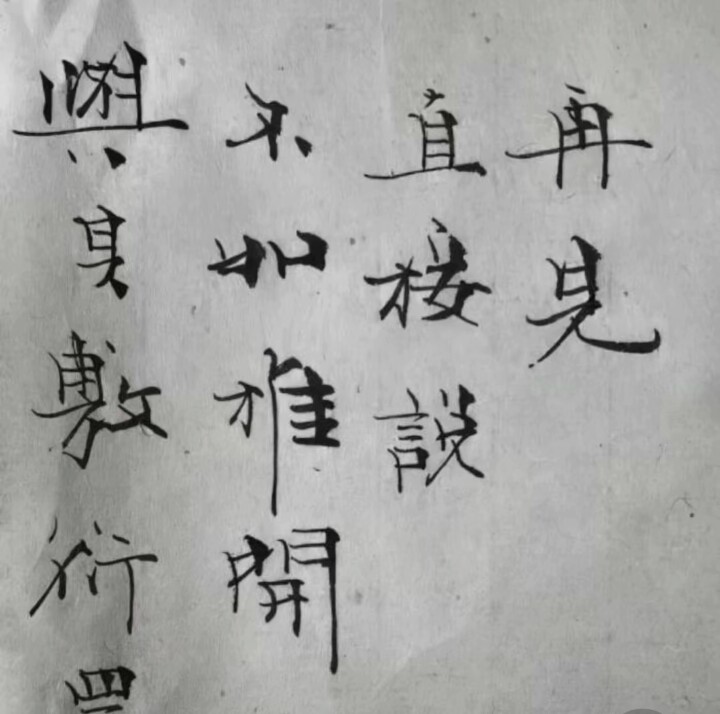 與其敷衍
不如推開
直接說
再見